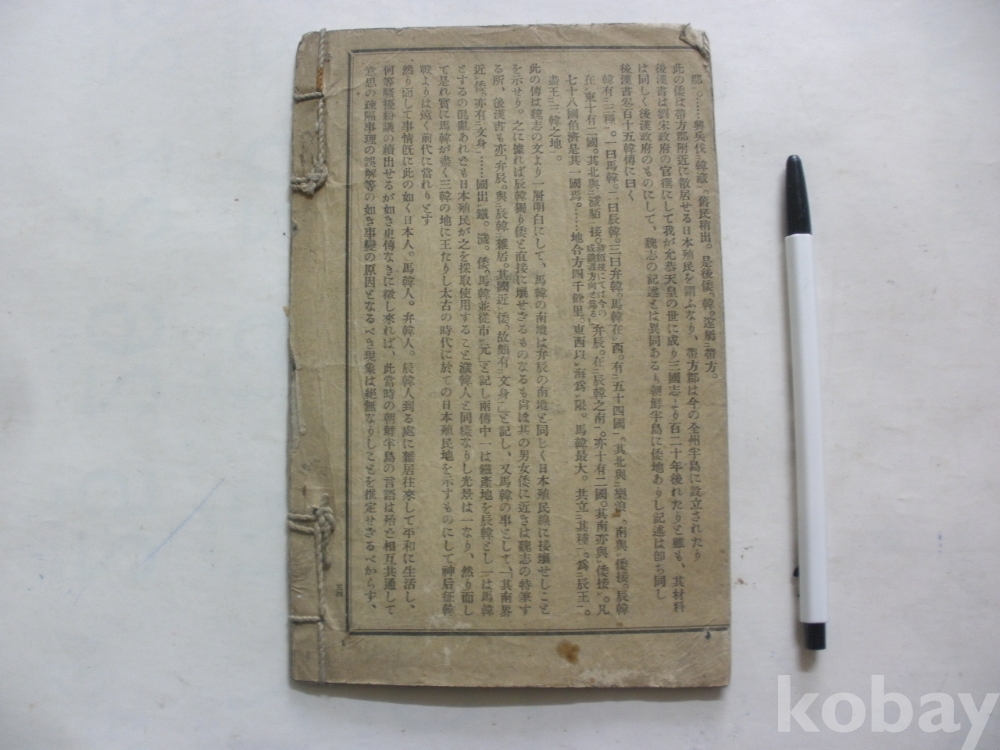 郡。……興兵伐韓濊。舊民稍出。是後倭、韓。遂屬帶方。
此の倭は帶方郡附近に散居せる日本殖民を謂ふなり、帶方郡は今の全州半島に設立されたり
後漢書は劉宋政府の官撰にして我が允恭天皇の世に成り三國志より百二十年後れたりと雖も、其材料
は同じく後漢政府のものにして、魏志の記述とは異同あるも朝鮮半島に倭地ありし記述は即ち同し
後漢書卷百十五韓傳に曰く
韓有三種。一曰馬韓。二曰辰韓。三曰弁韓。馬韓在西。有五十四國。其北與樂浪。南與倭接。辰韓
在東。十有二國。其北與濊貊接。弁辰。在辰韓之南。亦十有二國。其南亦與倭接。凡
七十八國。伯濟是其一國焉。……地合方四千餘里。東西以海爲限。馬韓最大。共立其種。爲辰王。
盡王三韓之地。
此の傳は魏志の文より一層明白にして、馬韓の南境は弁辰の南境と同じく日本殖民線に接壤せしこと
を示せり。之に據れば辰韓獨り倭と直接に壤せざるものなるも尚ほ其の男女倭に近きは魏志の特筆す
る所、後漢書も亦「弁辰。與辰韓雜居。其國近倭。故頗有文身」と記し、又馬韓の事として、「其南界
近倭。亦有文身」……國出鐵。濊。倭。馬韓並從市元」と記し兩傳中一は鐵產地を辰韓とし二は馬韓
とするの混亂あれども日本殖民が之を採取使用すること濊韓人と同樣なりし光景は一なり、然り而し
て是れ實に馬韓が盡く三韓の地に王たりし太古の時代に於ての日本殖民地を示すものにして神后征韓
戰よりは遠く前代に當れりとす
然り而して事情既に此の如く日本人。馬韓人。弁韓人。辰韓人到る處に雜居往來して平和に生活し、
何等騷擾紛議の續出せるが如き史傳なきに徵し來れば、此當時の朝鮮半島の言語は殆と相互共通して
意思の疎隔事理の誤解等の如き事變の原因となるべき現象は絕無なりしことを推定せざるべからず、
kobay